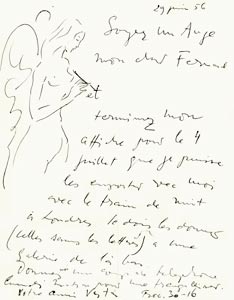 29 juin 56
Soyez un Ange
mon cher Fernand
et
terminez mon
affiche pour le 4
juillet que je puisse
les emporter avec moi
avec le train de nuit
à Londres. Je dois les donner
(celles sans les lettres) à une
Galerie de là bas
Donnez un coup de téléphone
votre ami